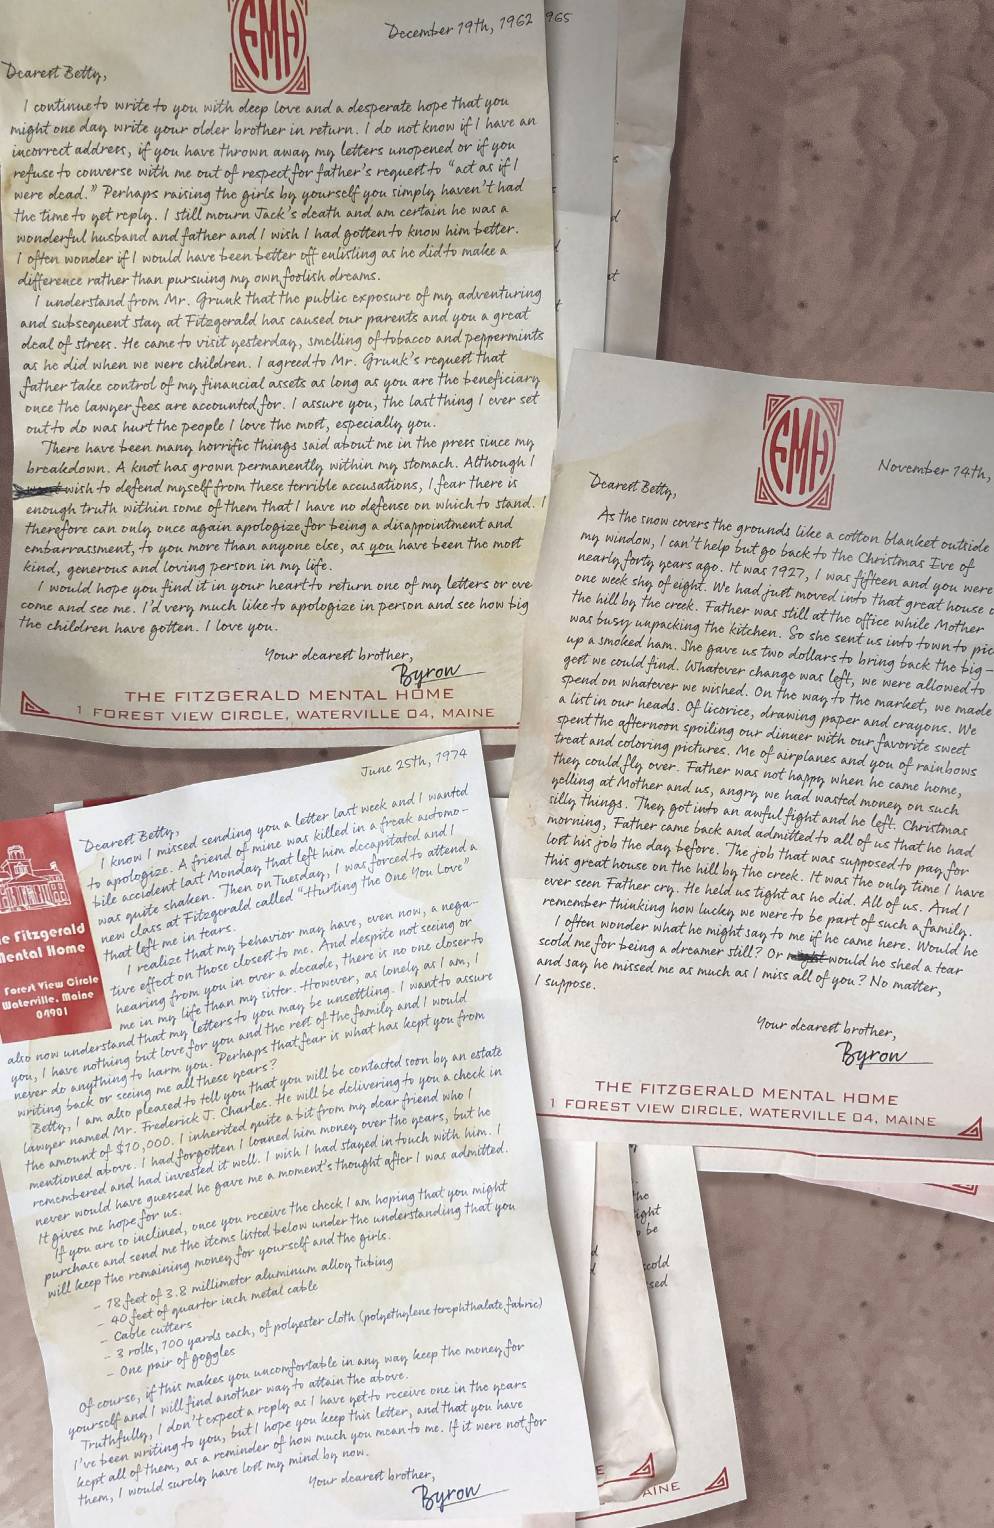 FMH
December 19th, 1962
965
Dearest Betty,
I continue to write to you with deep love and a desperate hope that you
might one day write your older brother in return. I do not know if I have an
incorrect address, if you have thrown away my letters unopened or if you
refuse to converse with me out of respect for father's request to "act as if I
were dead." Perhaps raising the girls by yourself you simply haven't had
the time to yet reply. I still mourn Jack's death and am certain he was a
wonderful husband and father and I wish I had gotten to know him better.
I often wonder if I would have been better off enlisting as he did to make a
difference rather than pursuing my own foolish dreams.
I understand from Mr. Grunk that the public exposure of my adventuring
and subsequent stay at Fitzgerald has caused our parents and you a great
deal of stress. He came to visit yesterday, smelling of tobacco and peppermints
as he did when we were children. I agreed to Mr. Grunk's request that
father take control of my financial assets as long as you are the beneficiary
once the lawyer fees are accounted for. I assure you, the last thing I ever set
out to do was hurt the people I love the most, especially you.
There have been many horrific things said about me in the press since my
breakdown. A knot has grown permanently within my stomach. Although I
wish to defend myself from these terrible accusations, I fear there is
enough truth within some of them that I have no defense on which to stand. I
therefore can only once again apologize for being a disappointment and
embarrassment, to you more than anyone else, as you have been the most
kind, generous and loving person in my life.
I would hope you find it in your heart to return one of my letters or eve
come and see me. I'd very much like to apologize in person and see how big
the children have gotten. I love you.
Your dearest brother,
Byron
THE FITZGERALD MENTAL HOME
1 FOREST VIEW CIRCLE, WATERVILLE 04, MAINE
FMH
November 14th,
Dearest Betty,
As the snow covers the grounds like a cotton blanket outside
my window, I can't help but go back to the Christmas Eve of
nearly forty years ago. It was 1927, I was fifteen and you were
one week shy of eight. We had just moved into that great house o
the hill by the creek. Father was still at the office while Mother
was busy unpacking the kitchen. So she sent us into town to pic
up a smoked ham. She gave us two dollars to bring back the big-
gest we could find. Whatever change was left, we were allowed to
spend on whatever we wished. On the way to the market, we made
a list in our heads. Of licorice, drawing paper and crayons. We
spent the afternoon spoiling our dinner with our favorite sweet
treat and coloring pictures. Me of airplanes and you of rainbows
they could fly over. Father was not happy when he came home,
yelling at Mother and us, angry we had wasted money on such
silly things. They got into an awful fight and he left. Christmas
morning, Father came back and admitted to all of us that he had
lost his job the day before. The job that was supposed to pay for
this great house on the hill by the creek. It was the only time I have
ever seen Father cry. He held us tight as he did. All of us. And I
remember thinking how lucky we were to be part of such a family.
I often wonder what he might say to me if he came here. Would he
scold me for being a dreamer still? Or would he shed a tear
and say he missed me as much as I miss all of you? No matter,
I suppose.
Your dearest brother,
Byron
THE FITZGERALD MENTAL HOME
1 FOREST VIEW CIRCLE, WATERVILLE 04, MAINE
he Fitzgerald
Mental Home
Forest View Circle
Waterville, Maine
04901
June 25th, 1974
Dearest Betty,
I know I missed sending you a letter last week and I wanted
to apologize. A friend of mine was killed in a freak automo-
bile accident last Monday that left him decapitated and I
was quite shaken. Then on Tuesday, I was forced to attend a
new class at Fitzgerald called "Hurting the One You Love"
that left me in tears.
I realize that my behavior may have, even now, a nega-
tive effect on those closest to me. And despite not seeing or
hearing from you in over a decade, there is no one closer to
me in my life than my sister. However, as lonely as I am, I
also now understand that my letters to you may be unsettling. I want to assure
you, I have nothing but love for you and the rest of the family and I would
never do anything to harm you. Perhaps that fear is what has kept you from
writing back or seeing me all these years?
Betty, I am also pleased to tell you that you will be contacted soon by an estate
lawyer named Mr. Frederick J. Charles. He will be delivering to you a check in
the amount of $10,000. I inherited quite a bit from my dear friend who I
mentioned above. I had forgotten I loaned him money over the years, but he
remembered and had invested it well. I wish I had stayed in touch with him. I
never would have guessed he gave me a moment's thought after I was admitted.
It gives me hope for us.
If you are so inclined, once you receive the check I am hoping that you might
purchase and send me the items listed below under the understanding that you
will keep the remaining money for yourself and the girls.
- 18 feet of 3.8 millimeter aluminum alloy tubing
- 40 feet of quarter inch metal cable
- Cable cutters
- 3 rolls, 100 yards each, of polyester cloth (polyethylene terephthalate fabric)
- One pair of goggles
Of course, if this makes you uncomfortable in any way keep the money for
yourself and I will find another way to attain the above.
Truthfully, I don't expect a reply as I have yet to receive one in the years
I've been writing to you, but I hope you keep this letter, and that you have
kept all of them, as a reminder of how much you mean to me. If it were not for
them, I would surely have lost my mind by now.
Your dearest brother,
Byron
he
ight
be
scold
sed
E
AINE